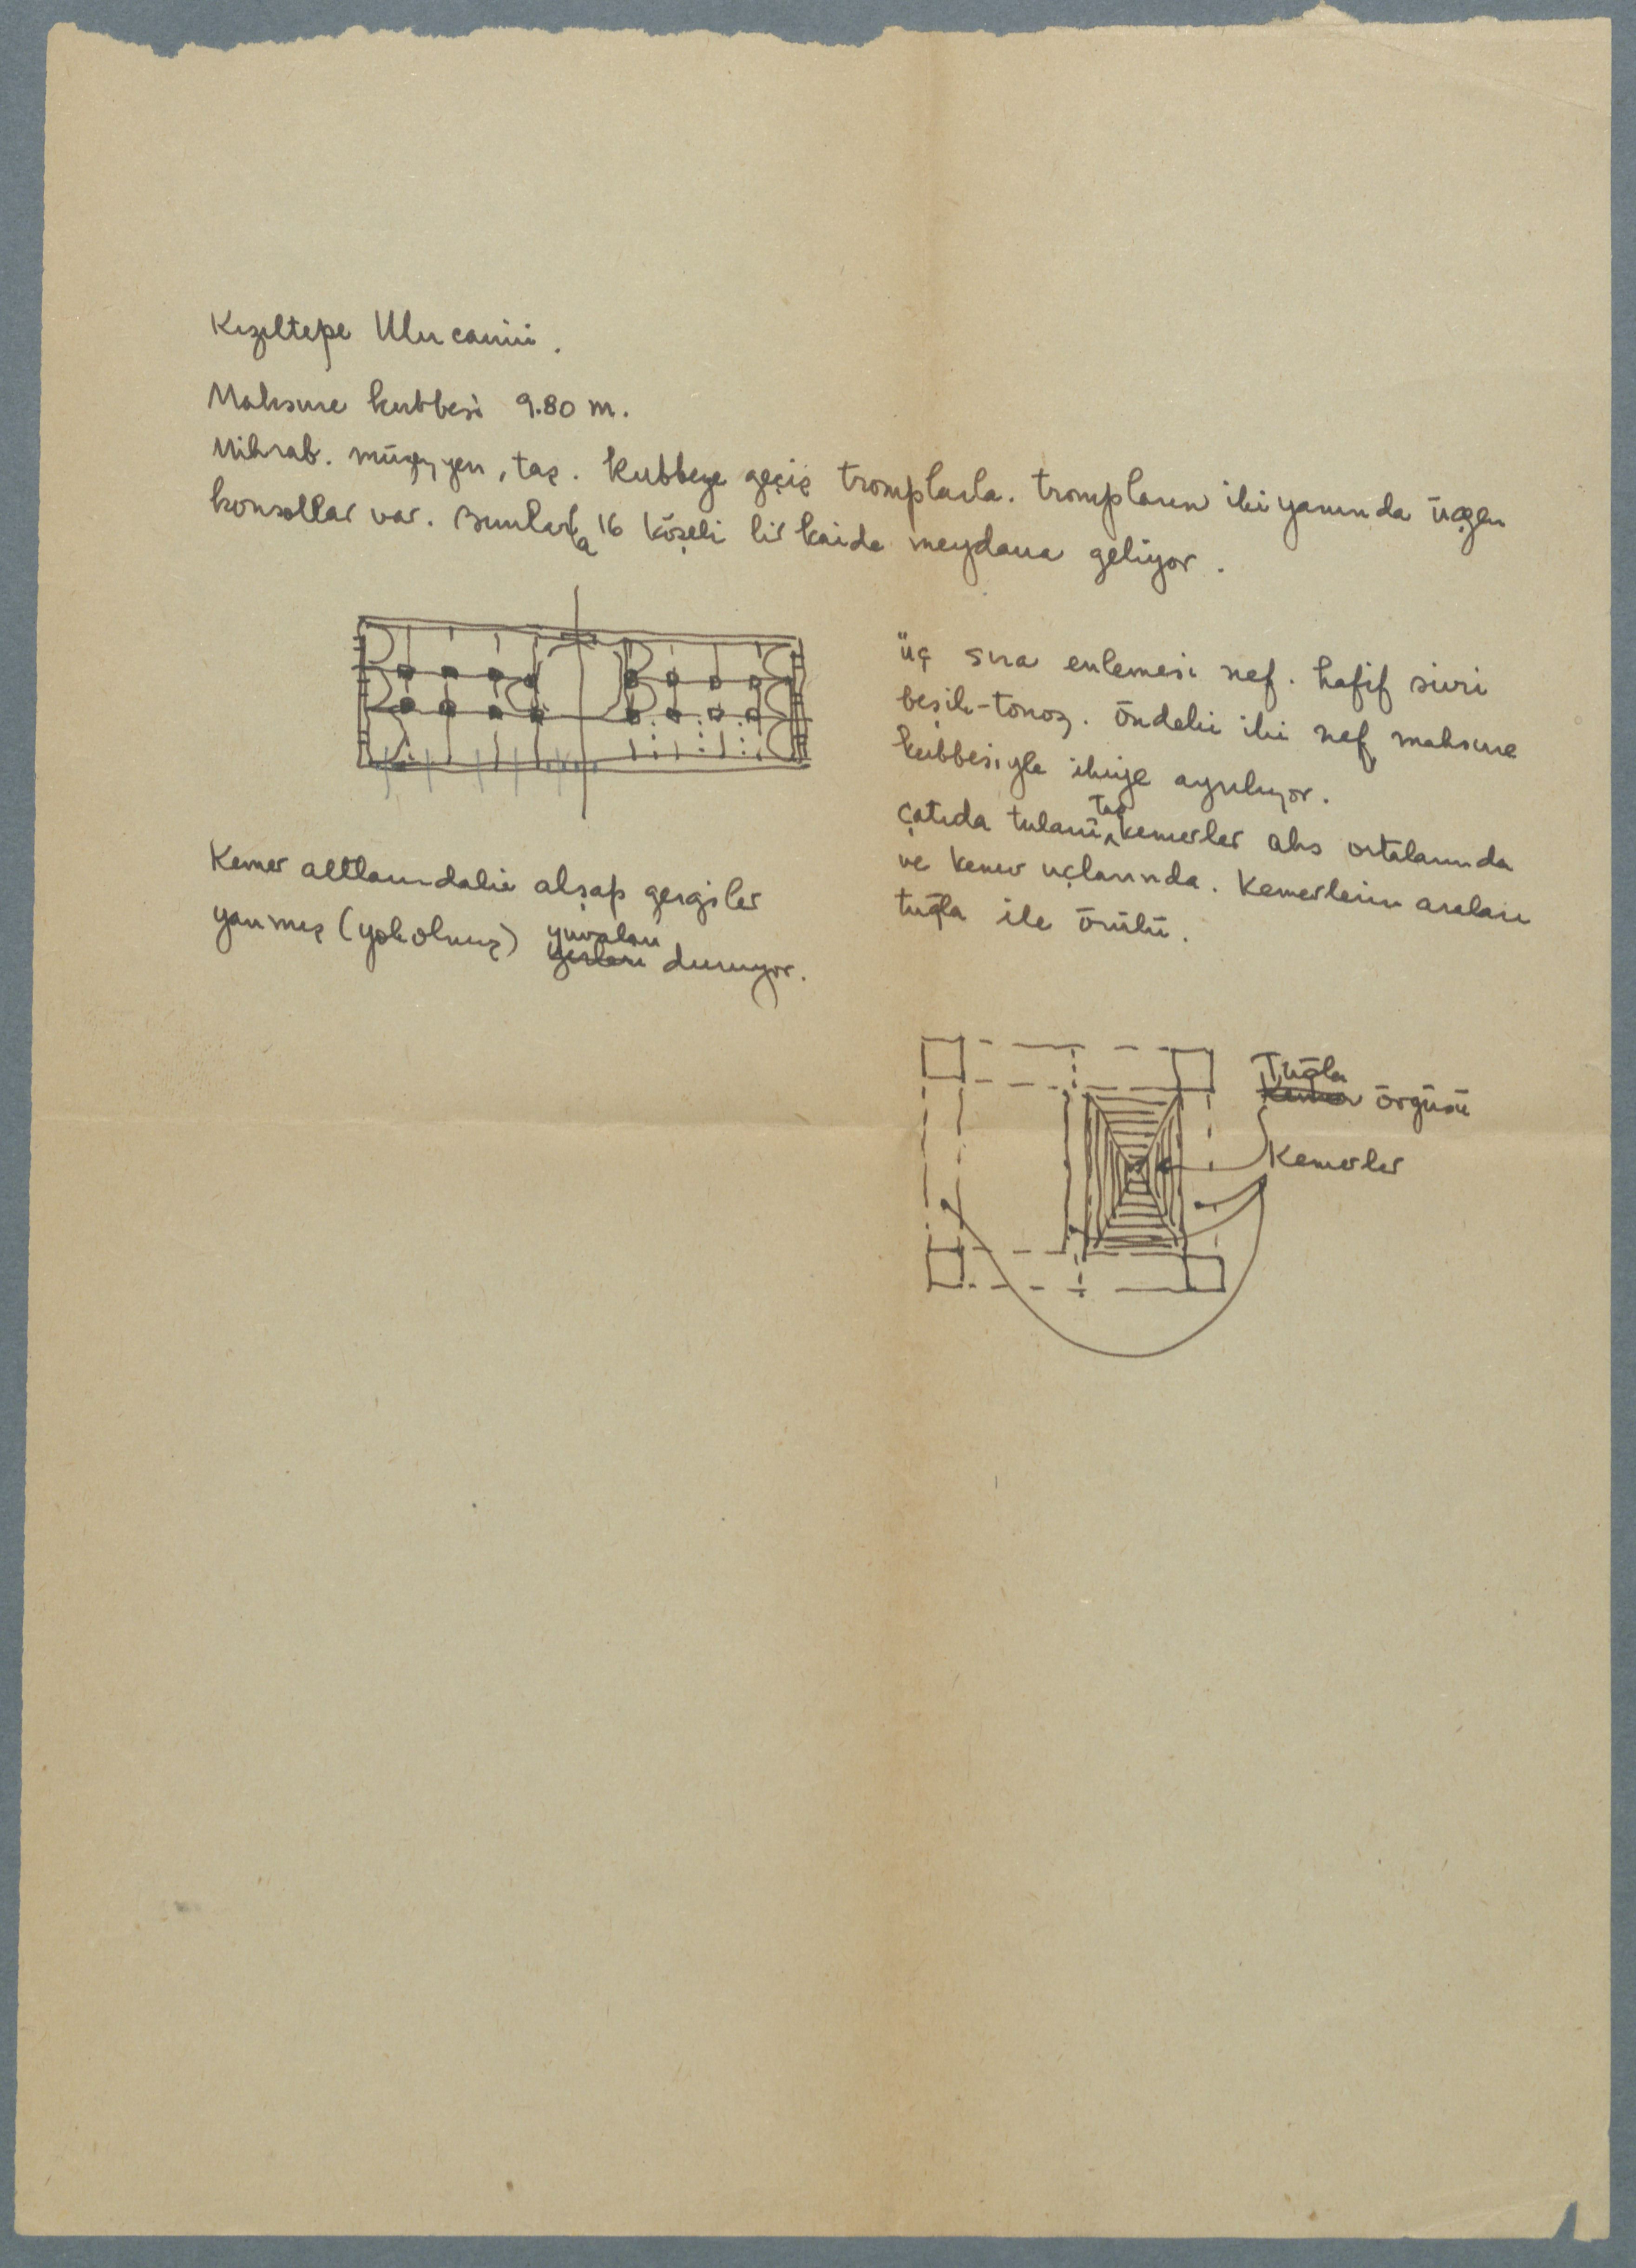 Kızıltepe Ulu camii.
Maksure kubbesi 9.80 m.
Mihrab. müzeyyen, taş. Kubbeye geçiş tromplarla. trompların iki yanında üçgen
konsollar var. Bunlarla 16 köşeli bir kaide meydana geliyor.
üç sıra enlemesi nef. hafif sivri
beşik-tonoz. öndeki iki nef maksure
kubbesiyle ikiye ayrılıyor.
çatıda tulani taş kemerler aks ortalarında
ve kemer uçlarında. Kemerlerin araları
tuğla ile örülü.
Kemer altlarındaki ahşap gergiler
yanmış (yok olmuş) yuvaları
yerleri duruyor.
Tuğla
Kemer örgüsü
Kemerler